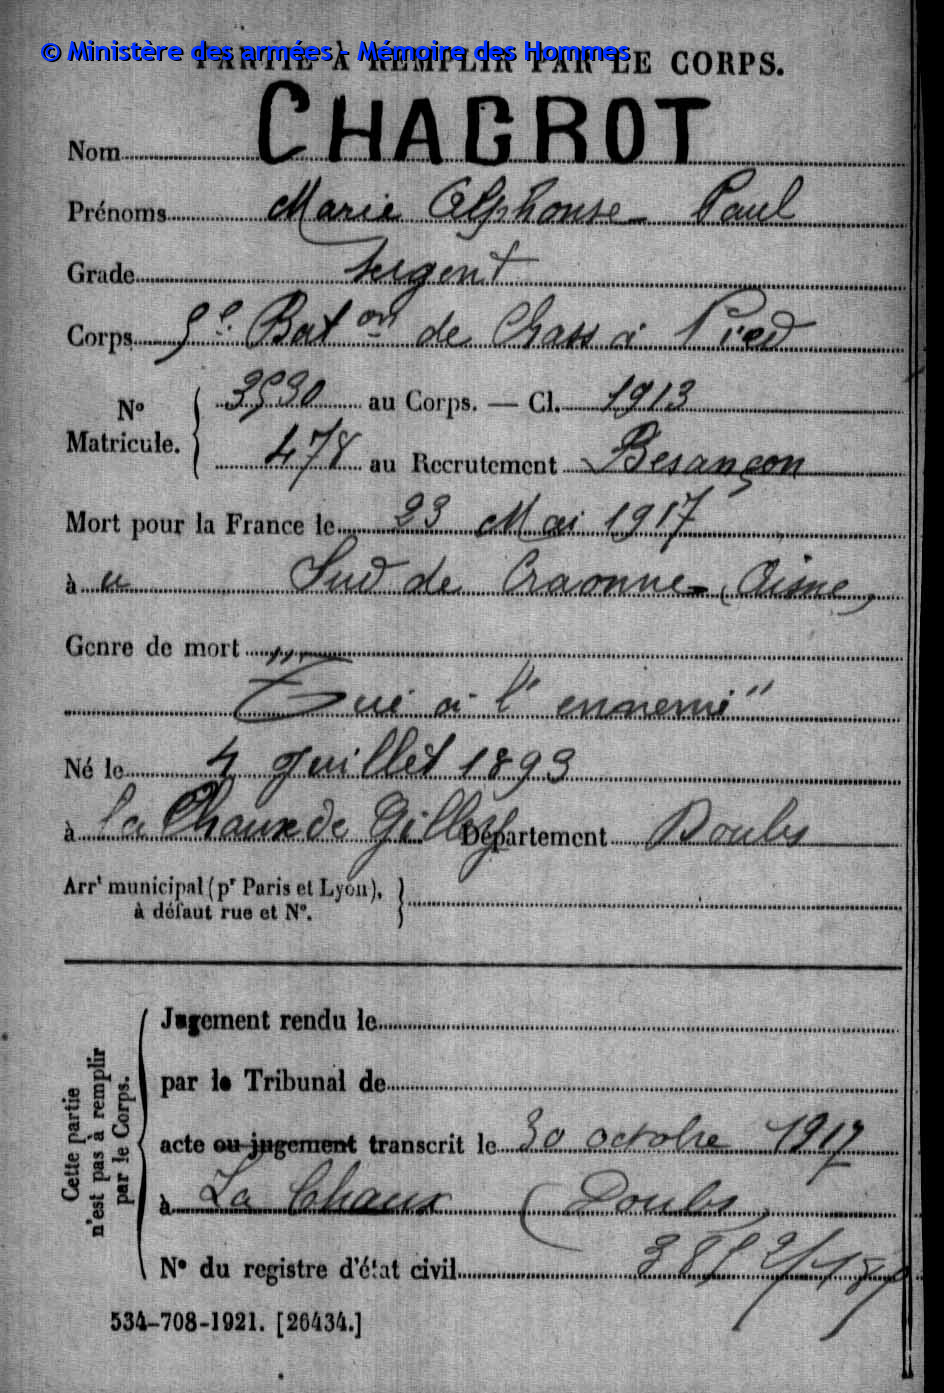 © Ministère des armées - Mémoire des Hommes
PARTIE À REMPLIR PAR LE CORPS.
Nom CHAGROT
Prénoms Marie Alphonse Paul
Grade Sergent
Corps 5e Baton de Chass à Pied
No Matricule. { 3530 au Corps. — Cl. 1913
478 au Recrutement Besançon
Mort pour la France le 23 Mai 1917
à u Sud de Craonne (Aisne)
Genre de mort
"Tué à l'ennemi"
Né le 4 Juillet 1893
à la Chaux de Gilley Département Doubs
Arrt municipal (pr Paris et Lyon),
à défaut rue et No.
Cette partie
n'est pas à remplir
par le Corps.
Jugement rendu le
par le Tribunal de
acte ou jugement transcrit le 30 octobre 1917
à La Chaux (Doubs)
No du registre d'état civil
534-708-1921. [26434.]